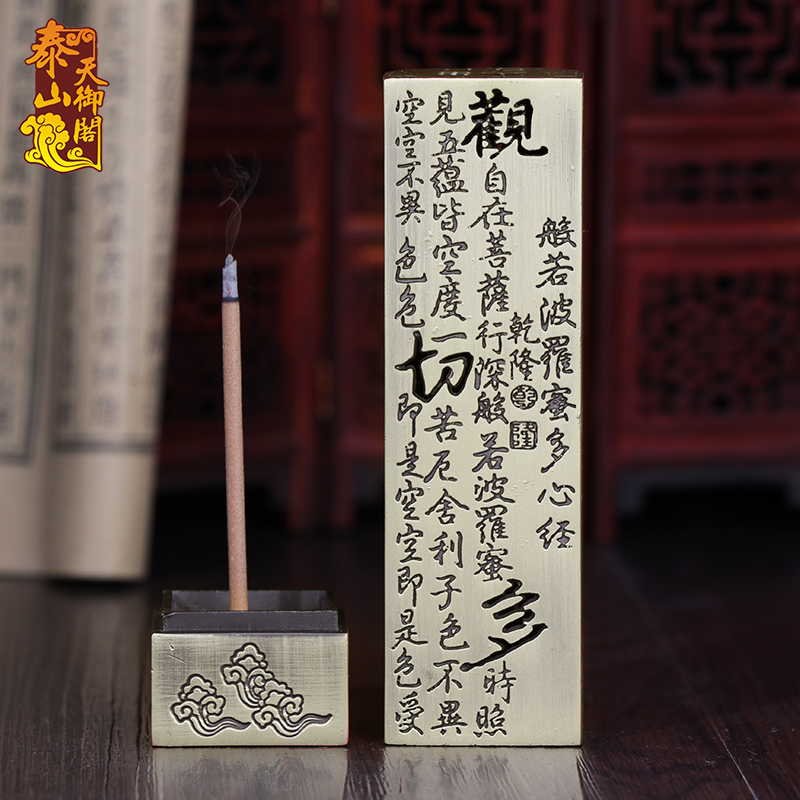 泰山
天御閣
般若波羅蜜多心経
乾隆
觀自在菩薩行深般若波羅蜜多時照
見五蘊皆空度一切苦厄舍利子色不異
空空不異色色即是空空即是色受